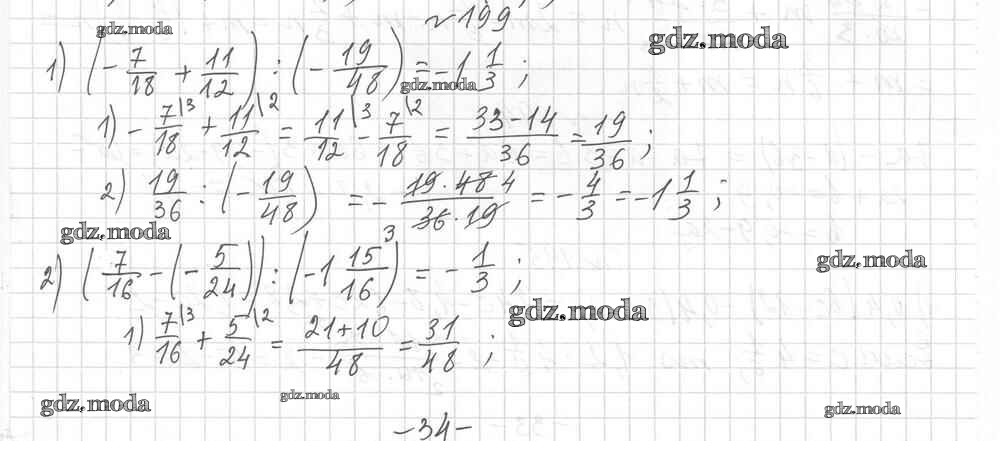 №199
gdz.moda gdz.moda
1) (-7/18 + 11/12) : (-19/48) = -1 1/3 ;
gdz.moda
1) -7/18\3 + 11/12\2 = 11/12\3 - 7/18\2 = 33-14/36 = 19/36 ;
2) 19/36 : (-19/48) = - 19·48 4/36·19 3 = -4/3 = -1 1/3 ;
gdz.moda
2) (7/16 - (-5/24)) : (-1 15/16) = -1/3 ;
gdz.moda
gdz.moda
1) 7/16\3 + 5/24\2 = 21+10/48 = 31/48 ;
gdz.moda gdz.moda gdz.moda
-34-